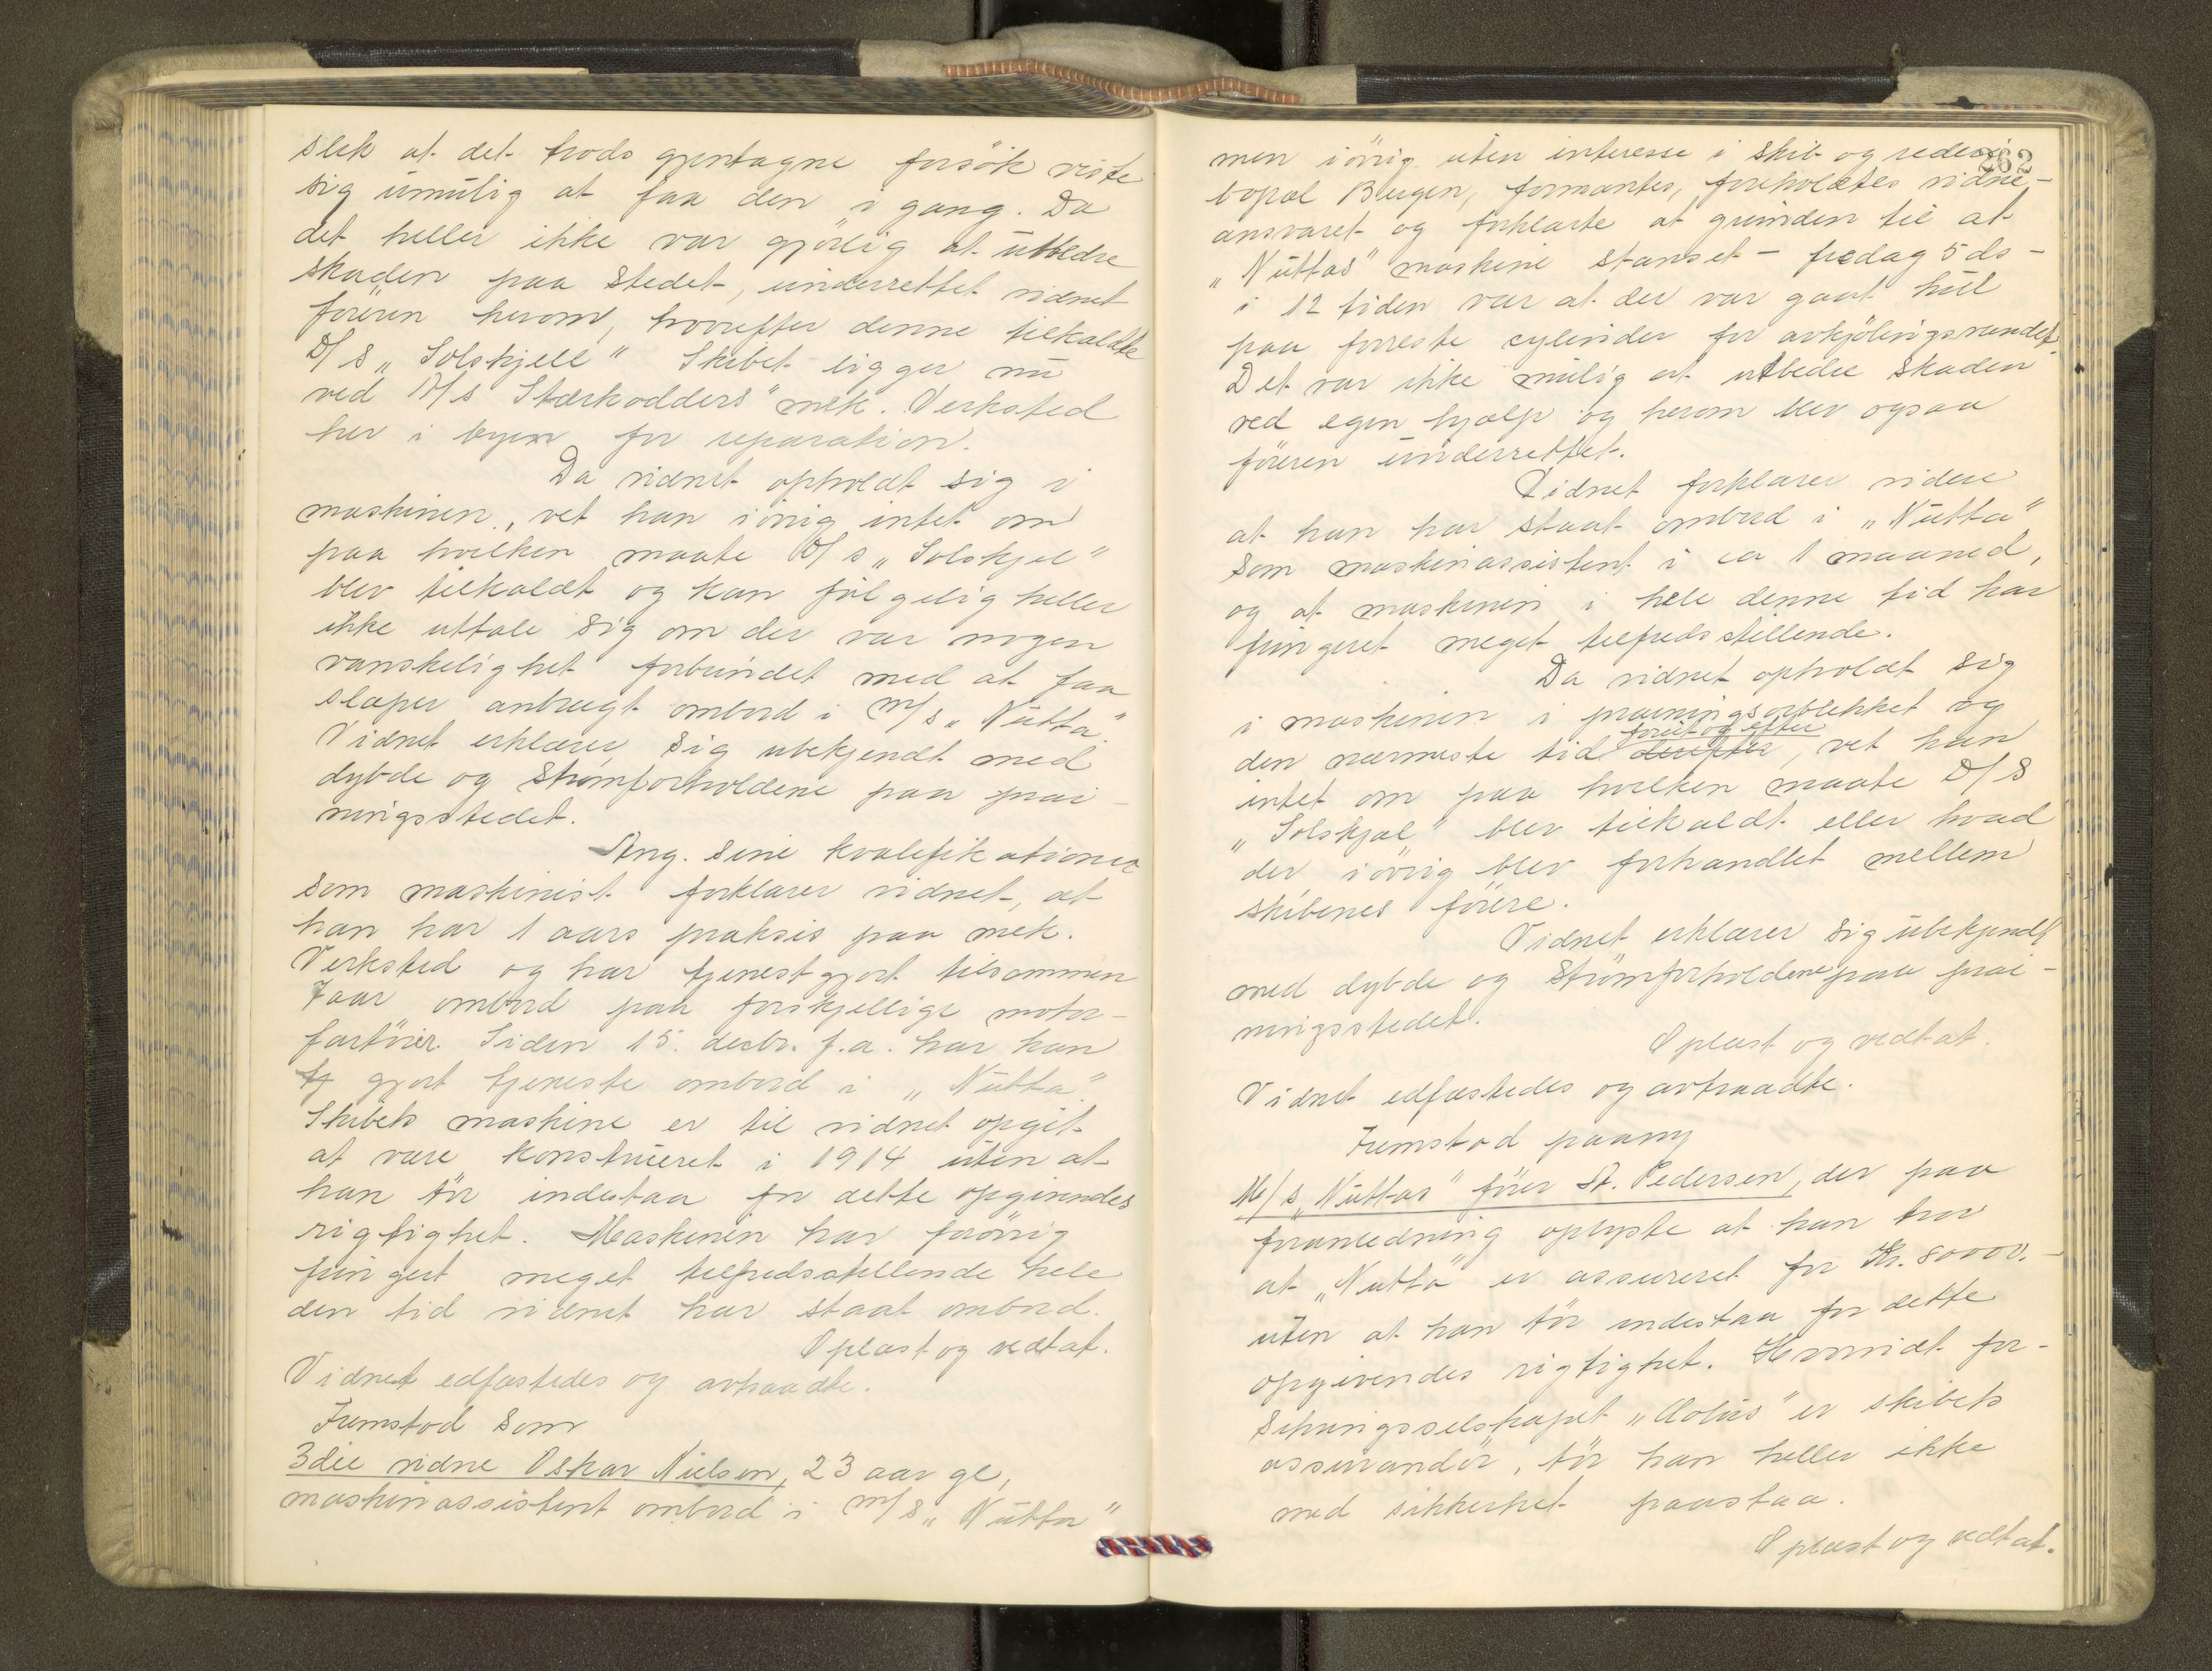 slik at det trods gjentagne forsök viste
sig umulig at faa den i gang. Da
det heller ikke var gjörlig at utbedre
skaden paa stedet, underrettet vidnet
föreren herom, hvorefter denne tilkaldte
D/S „Solskjell" Skibet ligger nu
ved A/S Stærkodders" mek. Verksted
her i byen for reparation.
Da vidnet opholdt sig i
maskinen, vet han iövrig intet om
paa hvilken maate D/S „Solskjel"
blev tilkaldt og kan fölgelig heller
ikke uttale sig om der var nogen
vanskelighet forbundet med at faa
slæper anbragt ombord i M/S „Nutta".
Vidnet erklærer sig ubekjendt med
dybde og Strömforholdene paa prai-
ningsstedet.
Ang. sine kvalifikationer
som maskinist forklarer vidnet, at
han har 1 aars praksis paa mek.
Verksted og har tjenestgjort tilsammen
7 aar ombord paa forskjellige motor-
fartöier. Siden 15. decbr. f.a. har han
tj gjort tjeneste ombord i „Nutta".
Skibets maskine er til vidnet opgit
at være konstrueret i 1914 uten at
han tör indestaa for dette opgivendes
rigtighet. Maskinen har forövrig
fungert meget tilfredsstillende hele
den tid vidnet har staat ombord.
Oplæst og vedtat.
Vidnet edfæstedes og avtraadte.
Fremstod som
3die vidne Oskar Nielsen, 23 aar gl,
maskinassistent ombord i M/S „Nutta"
262
men iövrig uten interesse i skib og rederi
bopæl Bergen, formantes, foreholdtes vidne-
ansvaret og forklarte at grunden til at
„Nuttas" maskine stanset - fredag 5 ds -
i 12 tiden var at der var gaat hul
paa forreste cylinder for avkjölingsvandet.
Det var ikke mulig at utbedre skaden
ved egen hjælp og herom blev ogsaa
föreren underrettet.
Vidnet forklarer videre
at han har staat ombord i „Nutta"
som maskinassistent i ca 1 maaned,
og at maskinen i hele denne tid har
fungeret meget tilfredsstillende.
Da vidnet opholdt sig
i maskinen i prainingsöieblikket og
den nærmeste tid derefter forut og efter, vet han
intet om paa hvilken maate D/S
„Solskjæl" blev tilkaldt eller hvad
der iövrig blev forhandlet mellem
skibenes förere.
Vidnet erklærer sig ubekjendt
med dybde og Strömforholdene paa prai-
ningsstedet.
Oplæst og vedtat.
Vidnet edfæstedes og avtraadte.
Fremstod paany
M/S „Nuttas" förer St. Pedersen, der paa
foranledning oplyste at han tror
at „Nutta" er assureret for Kr. 80000.-
uten at han tör indestaa for dette
opgivendes rigtighet. Hvorvidt for-
sikringsselskapet „Æolus" er skibets
assurandör, tör han heller ikke
med sikkerhet paastaa.
Oplæst og vedtat.